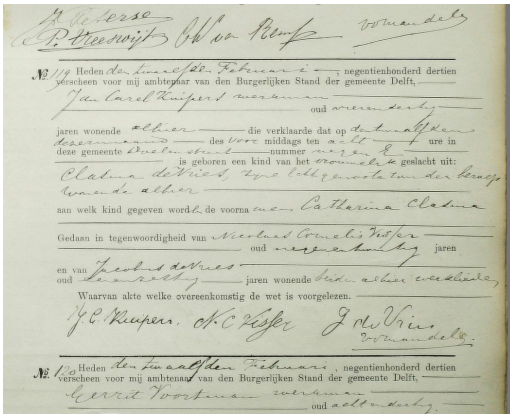 P. Vreeswijk
No. 119 Heden den twaalfden Februari, negentienhonderd dertien
verscheen voor mij ambtenaar van den Burgerlijken Stand der gemeente Delft,
Carel Kuipers werkman
oud vierendertig
jaren wonende alhier die verklaarde dat op den twaalfden
dezer maand des voor middags ten acht ure in
deze gemeente nummer negen
is geboren een kind van het vrouwelijk geslacht uit:
Clasina de Vries, zijne echtgenoote van beroep
wonende alhier
aan welk kind gegeven wordt de voornamen Catharina Clasina
Gedaan in tegenwoordigheid van Nicolaas Cornelis Visser
oud jaren
en van Jacobus de Vries
oud jaren wonende beiden alhier
Waarvan akte welke overeenkomstig de wet is voorgelezen.
J C Kuipers. N. C Visser J de Vries
No. 120 Heden den twaalfden Februari, negentienhonderd dertien
verscheen voor mij ambtenaar van den Burgerlijken Stand der gemeente Delft,
Gerrit Voortman werkman
oud achtendertig